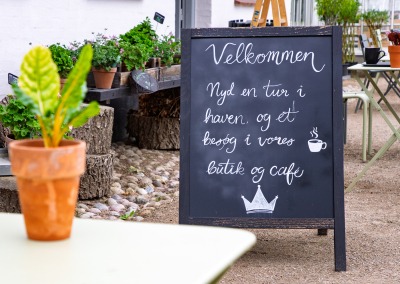 Velkommen
Nyd en tur i
haven, og et
besøg i vores
butik og café